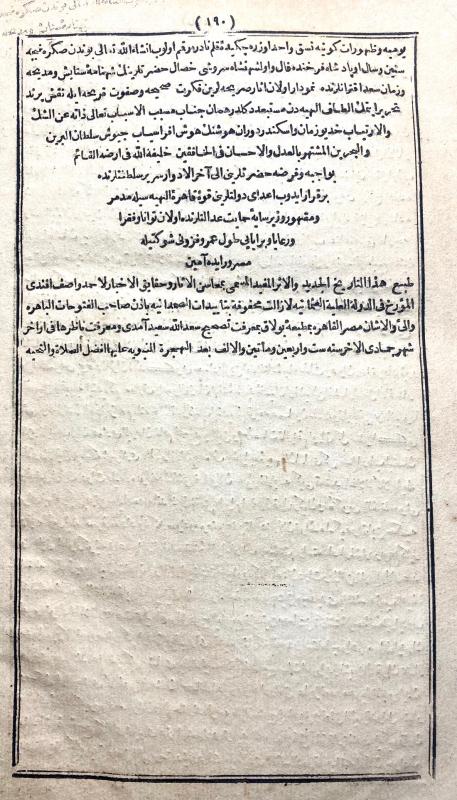 ( ١٩٠ )
يوميه وظهورات كونيه نسق واحد اوزره چكيدهٔ قلم نادره رقم اولوب انشاء الله تعالى بوندن صكره فيمه
سنين وسال اوپادشاه فرخنده فال واول شهنشاه سروشى خصال حضرتلرينك شهنامهٔ ستايش ومديحه
وزمان سعد اقترانلرنده نمودار اولان اثار صريحه لرين فكرت صحيحه وصفوت قريحه ايله نقش پرند
تحرير ايتمك الطاف الهيه دن مستبعد دكلدر همان جناب مسبب الاسباب تعالى ذاته عن الشك
والارتياب خديو زمان واسكندر دوران هوشنك هوش افراسياب جيوش سلطان البرين
والبحرين المشتهر بالعدل والاحسان فى الخافقين خليفة الله فى ارضه القائم
بواجبه وفرضه حضرتلرينى الى آخر الادوار سرير سلطنتلرنده
برقرار ايدوب اعداى دولتلرينى قوهٔ قاهرهٔ الهيه سيله مدمر
ومقهور وزير سايهٔ حمايت عدالتلرنده اولان توانا وفقرا
ورعايا وبرايايى طول عمر وفزونى شوكتيله
مسرور ايده آمين
طبع هذا التاريخ الجديد والاثر المفيد المسمى بمحاسن الآثار وحقايق الاخبار لاحمد واصف افندى
المؤرخ فى الدولة العلية العثمانيه لازالت محفوفة بتاييدات الصمدانيه باذن صاحب الفتوحات الباهره
والى والاشان مصر القاهره بمطبعة بولاق بمعرفت تصحيح سعد الله سعيد آمدى ومعرفت ناظرها فى اواخر
شهر جمادى الاخر سنه ست واربعين وماتين والالف بعد الهجرة النبويه عليها افضل الصلاة والتحيه